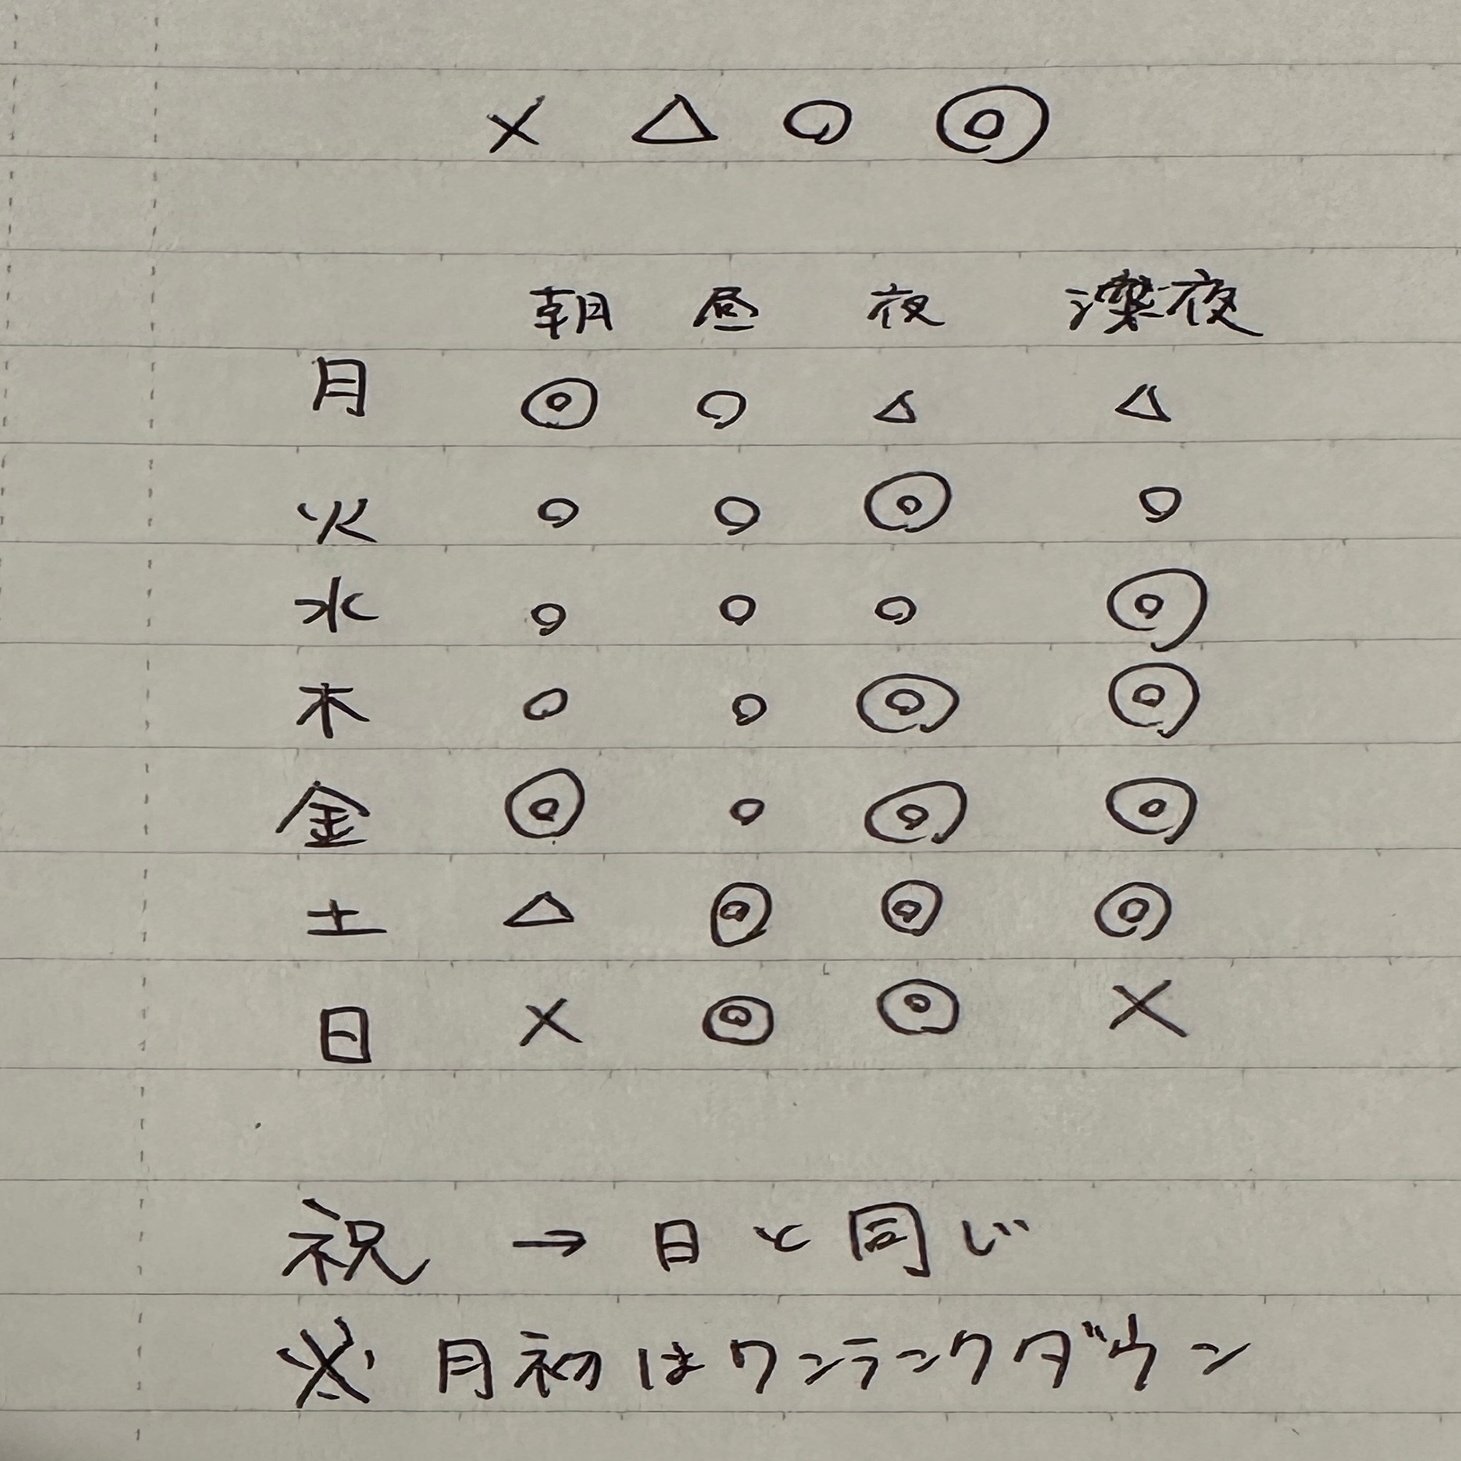 × △ ○ ◎
朝 昼 夜 深夜
月 ◎ ○ △ △
火 ○ ○ ◎ ○
水 ○ ○ ○ ◎
木 ○ ○ ◎ ◎
金 ◎ ○ ◎ ◎
土 △ ◎ ◎ ◎
日 × ◎ ◎ ×
祝 → 日と同じ
※ 月初はワンランクダウン